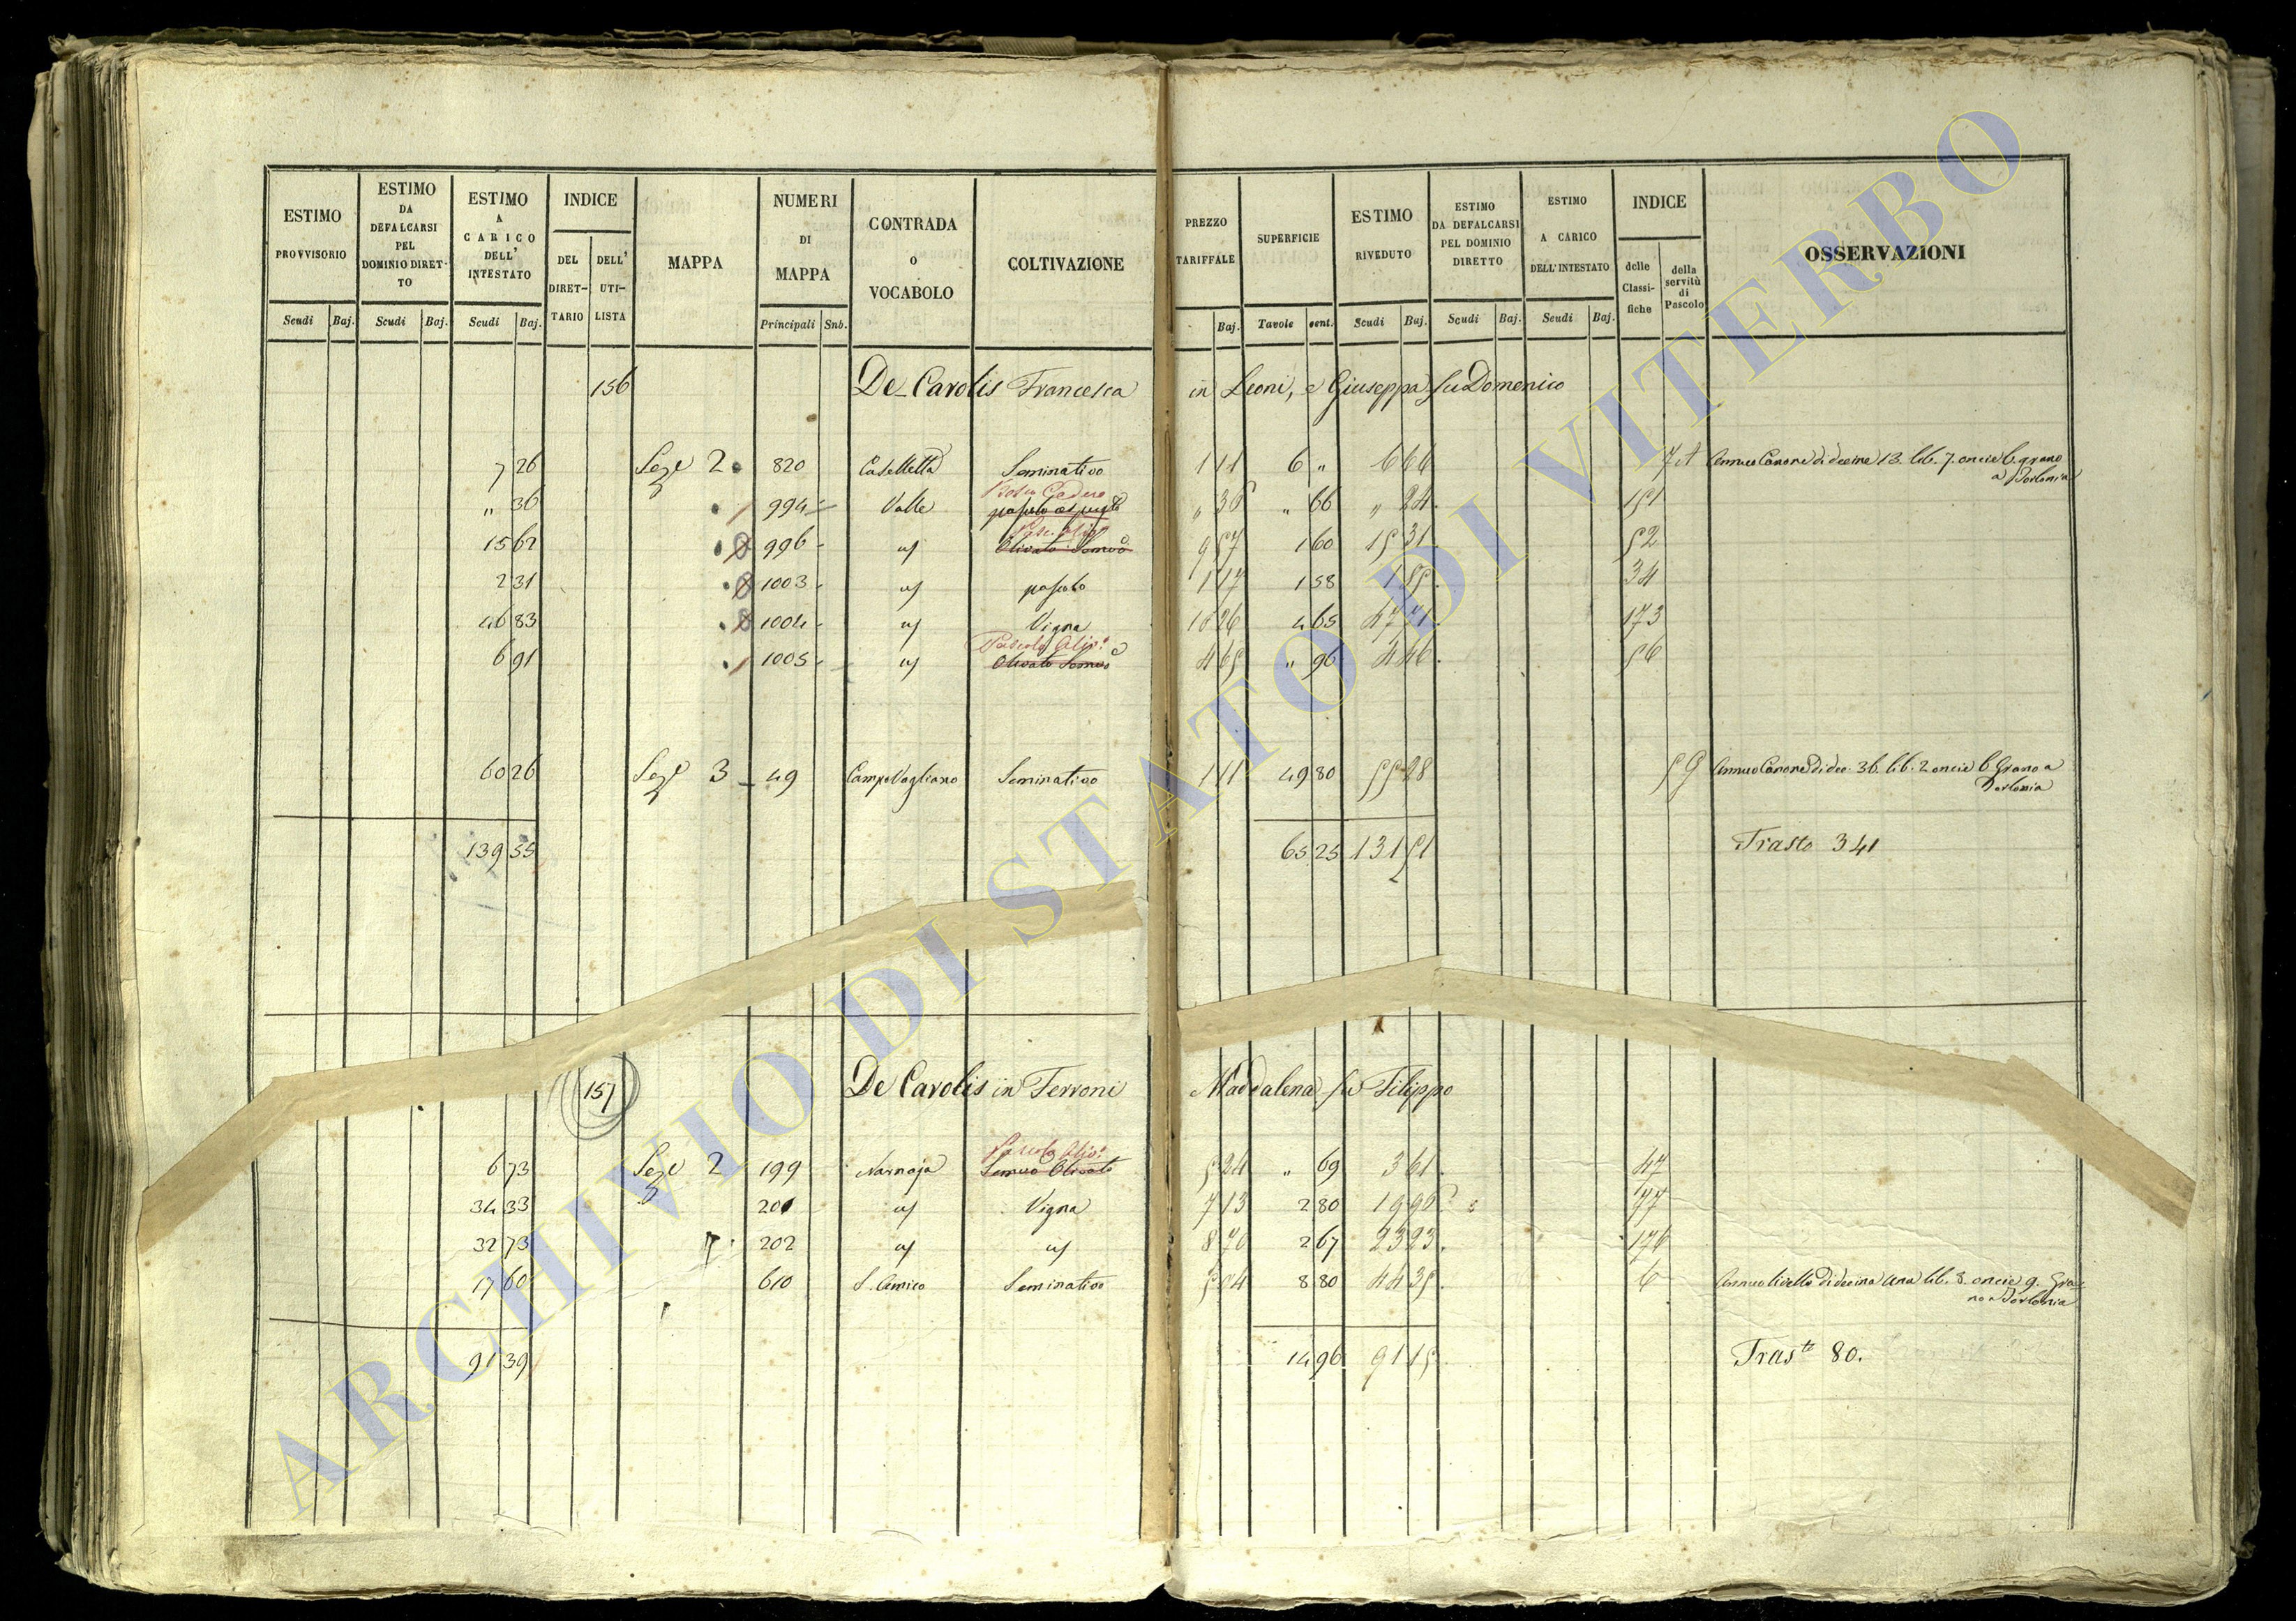 ESTIMO PROVVISORIO Scudi Baj.
ESTIMO DA DEFALCARSI PEL DOMINIO DIRET-TO Scudi Baj.
ESTIMO A CARICO DELL' INTESTATO Scudi Baj.
INDICE DEL DIRET-TARIO DELL' UTI-LISTA
MAPPA
NUMERI DI MAPPA Principali Snb.
CONTRADA O VOCABOLO
COLTIVAZIONE
PREZZO TARIFFALE Baj.
SUPERFICIE Tavole cent.
ESTIMO RIVEDUTO Scudi Baj.
ESTIMO DA DEFALCARSI PEL DOMINIO DIRETTO Scudi Baj.
ESTIMO A CARICO DELL'INTESTATO Scudi Baj.
INDICE delle Classi-fiche della servitù di Pascolo
OSSERVAZIONI
156 De Carolis Francesca in Leoni, e Giuseppa fu Domenico
7 26 Seze 2 820 Caselletta Seminativo 1 11 6 " 6 66 7 A Annuo Canone di decine 13. lib. 7. oncie 6. grano
a Torlonia
Bosco Ceduo
" 36 994 Valle pascolo 36 " 66 " 24 151
15 62 996 Olivato Semvo 9 57 1 60 15 31 52
2 31 1003 pascolo 1 17 1 58 1 85 34
46 83 1004 Vigna 10 26 4 65 47 71 173
Pascolo Olivo
6 91 1005 Olivato Semvo 4 65 " 96 4 46 56
60 26 Seze 3 49 Campo Vogliano Seminativo 1 11 49 80 55 28 5 G Annuo Canone di dec. 36. lib. 2 oncie 6 Grano a
Torlonia
139 55 65 25 131 51 Trasto 341
157 De Carolis in Ferroni Maddalena fu Filippo
Pascolo Olivo
6 73 Seze 2 199 Narnaja Semvo Olivato 5 24 " 69 3 61 47
34 33 201 Vigna 7 13 2 80 19 96 177
32 73 202 8 70 2 67 23 23 176
17 60 610 S. Amico Seminativo 5 04 8 80 44 35 6 Annuo livello di decina una lib. 8. oncie 9. Gra-
no a Torlonia
91 39 14 96 91 15 Trasto 80.
ARCHIVIO DI STATO DI VITERBO